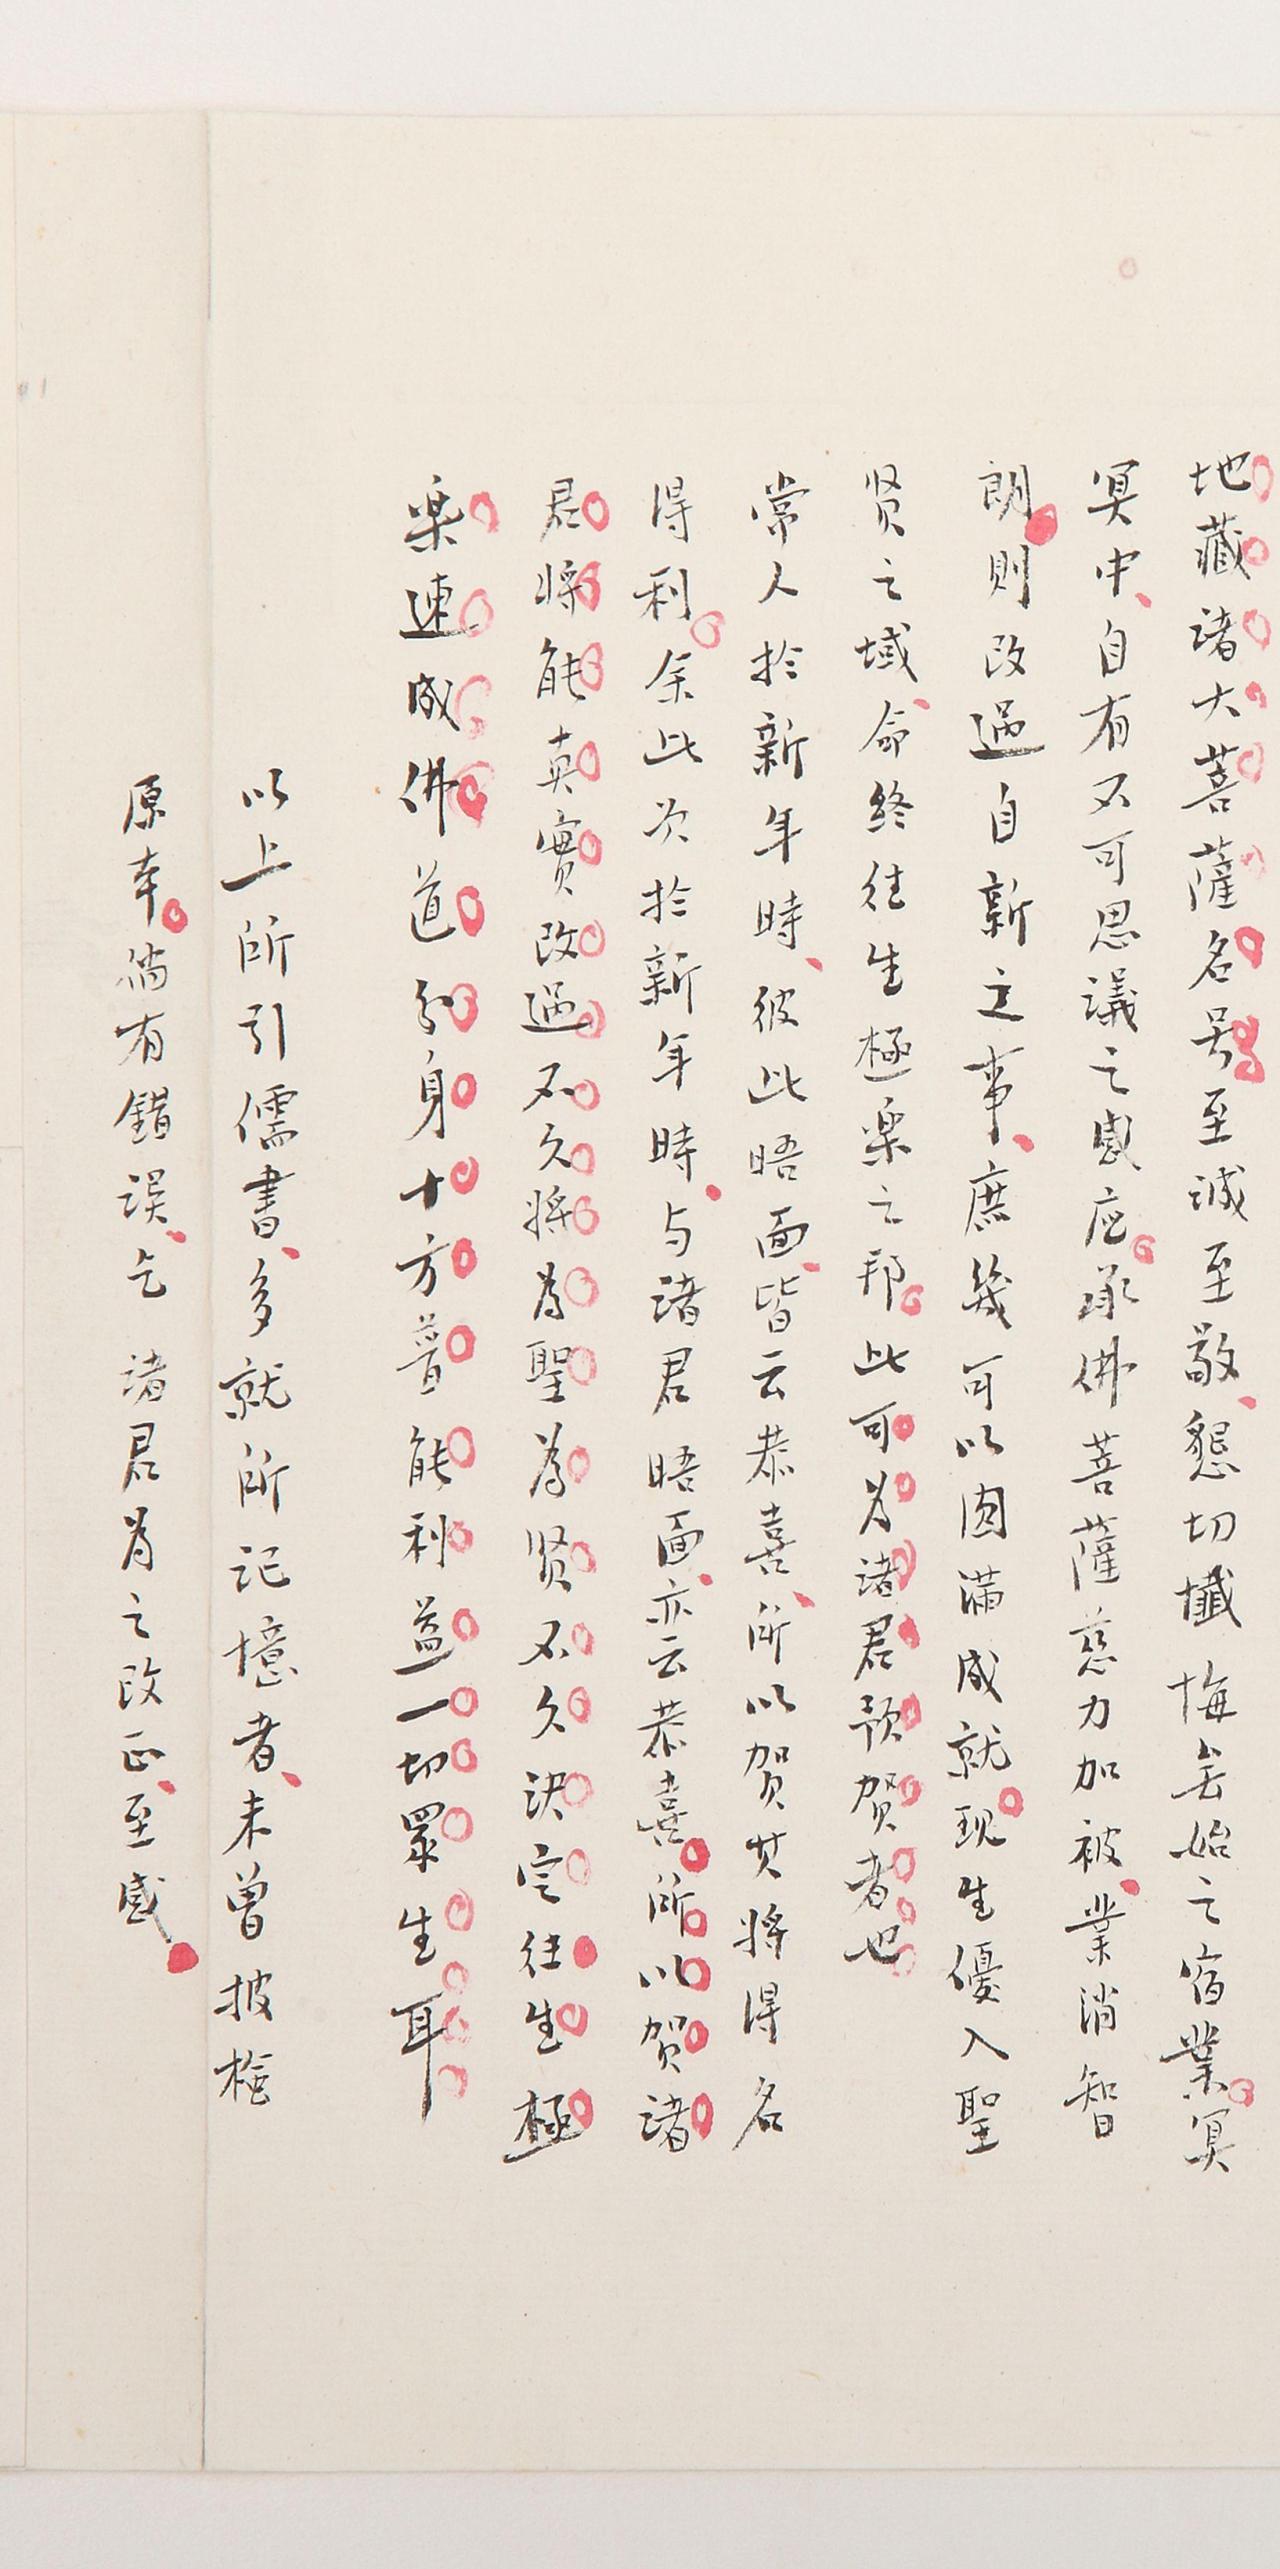 地藏諸大菩薩名号至誠至敬、懇切懺悔无始之宿業。冥
冥中、自有不可思議之感应。承佛菩薩慈力加被、業消智
朗。則改過自新之事、庶幾可以圆滿成就。現生優入聖
贤之域、命終往生極楽之邦。此可为諸君预贺者也
常人於新年時、彼此晤面、皆云恭喜、所以贺其将得名
得利。余此次於新年時、与諸君晤面、亦云恭喜。所以贺諸
君将能真實改過不久将為聖為贤不久決定往生極
楽速成佛道分身十方普能利益一切眾生耳
以上所引儒書、多就所记憶者、未曾披检
原本。倘有錯誤、乞 諸君为之改正、至感。